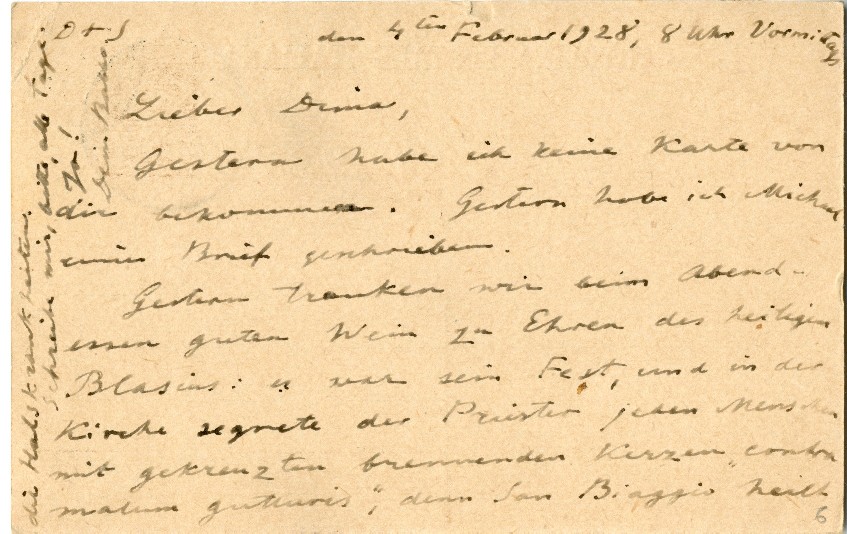 D + S
den 4ten Februar 1928, 8 Uhr Vormittags
Lieber Dima,
Gestern habe ich keine Karte von
dir bekommen. Gestern habe ich Michael
einen Brief geschrieben.
Gestern tranken wir beim Abend-
essen guten Wein zu Ehren des heiligen
Blasius: es war sein Fest, und in der
Kirche segnete der Priester jeden Menschen
mit gekreuzten brennenden Kerzen „contra
malum gutturis“, denn San Biaggio heilt
die Halskrankheiten.
Schreibe mir, bitte, alle Tage.
Ja!
Dein
6